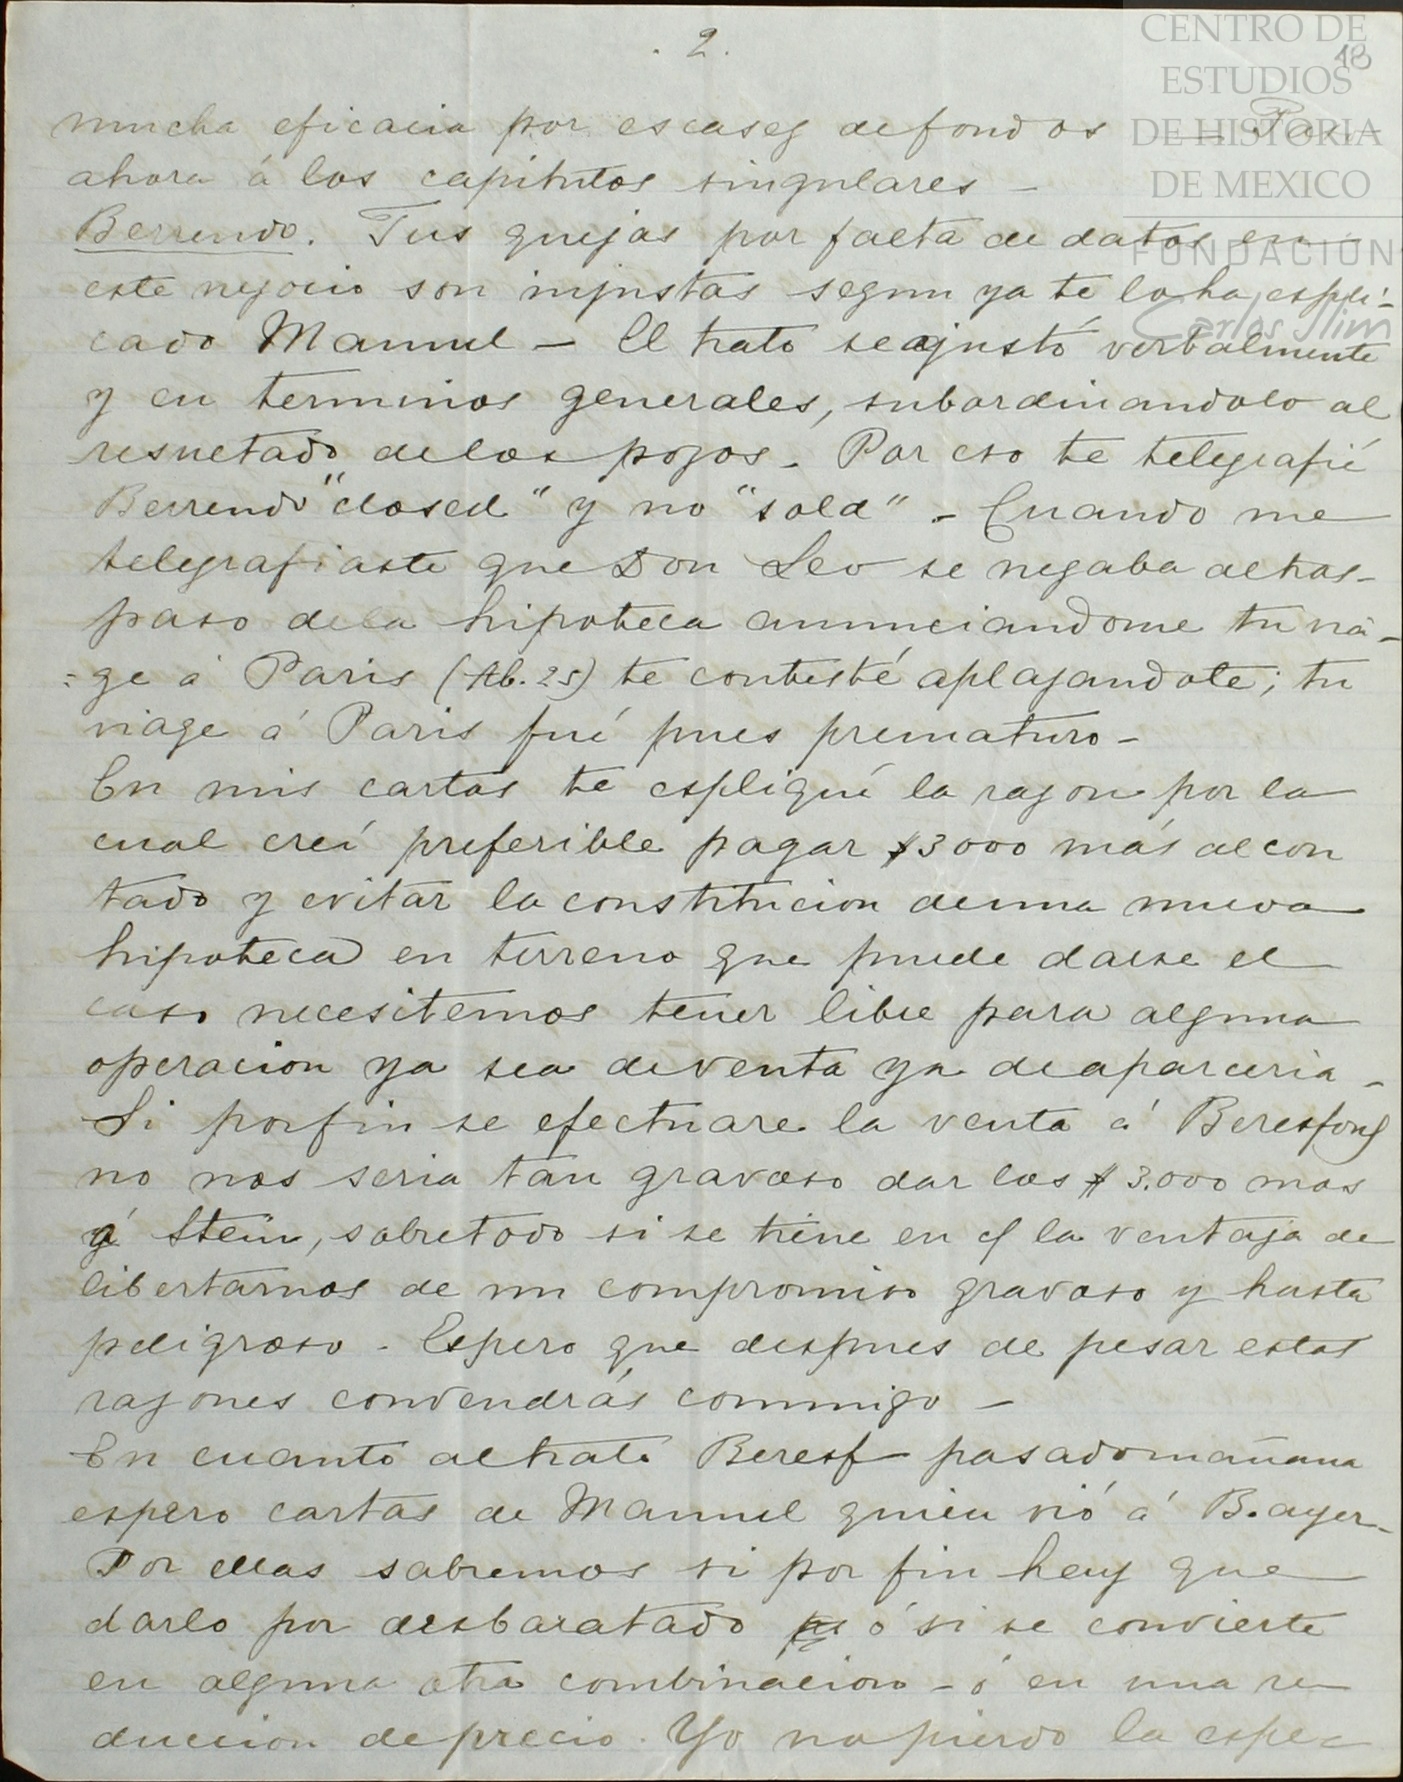 . 2.
18
CENTRO DE
ESTUDIOS
DE HISTORIA
DE MEXICO
FUNDACIÓN
Carlos Slim
mucha eficacia por escasez de fondos — Paso
ahora á los capitulos singulares —
Berrendo. Tus quejas por falta de datos en
este negocio son injustas segun ya te lo ha espli-
cado Manuel — El trato se ajustó verbalmente
y en terminos generales, subordinandolo al
resultado de los pozos. Por eso te telegrafié
Berrendo "closed" y no "sold". - Cuando me
telegrafiaste que Don Leo se negaba al tras-
paso de la hipoteca anunciandome tu via-
=ge á Paris (Ab. 25) te contesté aplazandote; tu
viage á Paris fué pues prematuro -
En mis cartas te espliqué la razon por la
cual creí preferible pagar $3000 más al con
tado y evitar la constitucion de una nueva
hipoteca en terreno que puede darse el
caso necesitemos tener libre para alguna
operacion ya sea de venta ya de aparceria -
Si por fin se efectuare la venta á Beresford
no nos seria tan gravoso dar los $3.000 mas
á Stein, sobretodo si se tiene en cf la ventaja de
libertarnos de un compromiso gravoso y hasta
peligroso. Espero que despues de pesar estas
razones convendrás conmigo —
En cuanto al trato Beresf pasado mañana
espero cartas de Manuel quien vió á B. ayer-
Por ellas sabremos si por fin hay que
darlo por desbaratado ó si se convierte
en alguna otra combinacion - ó en una re
duccion de precio. Yo no pierdo la espe=